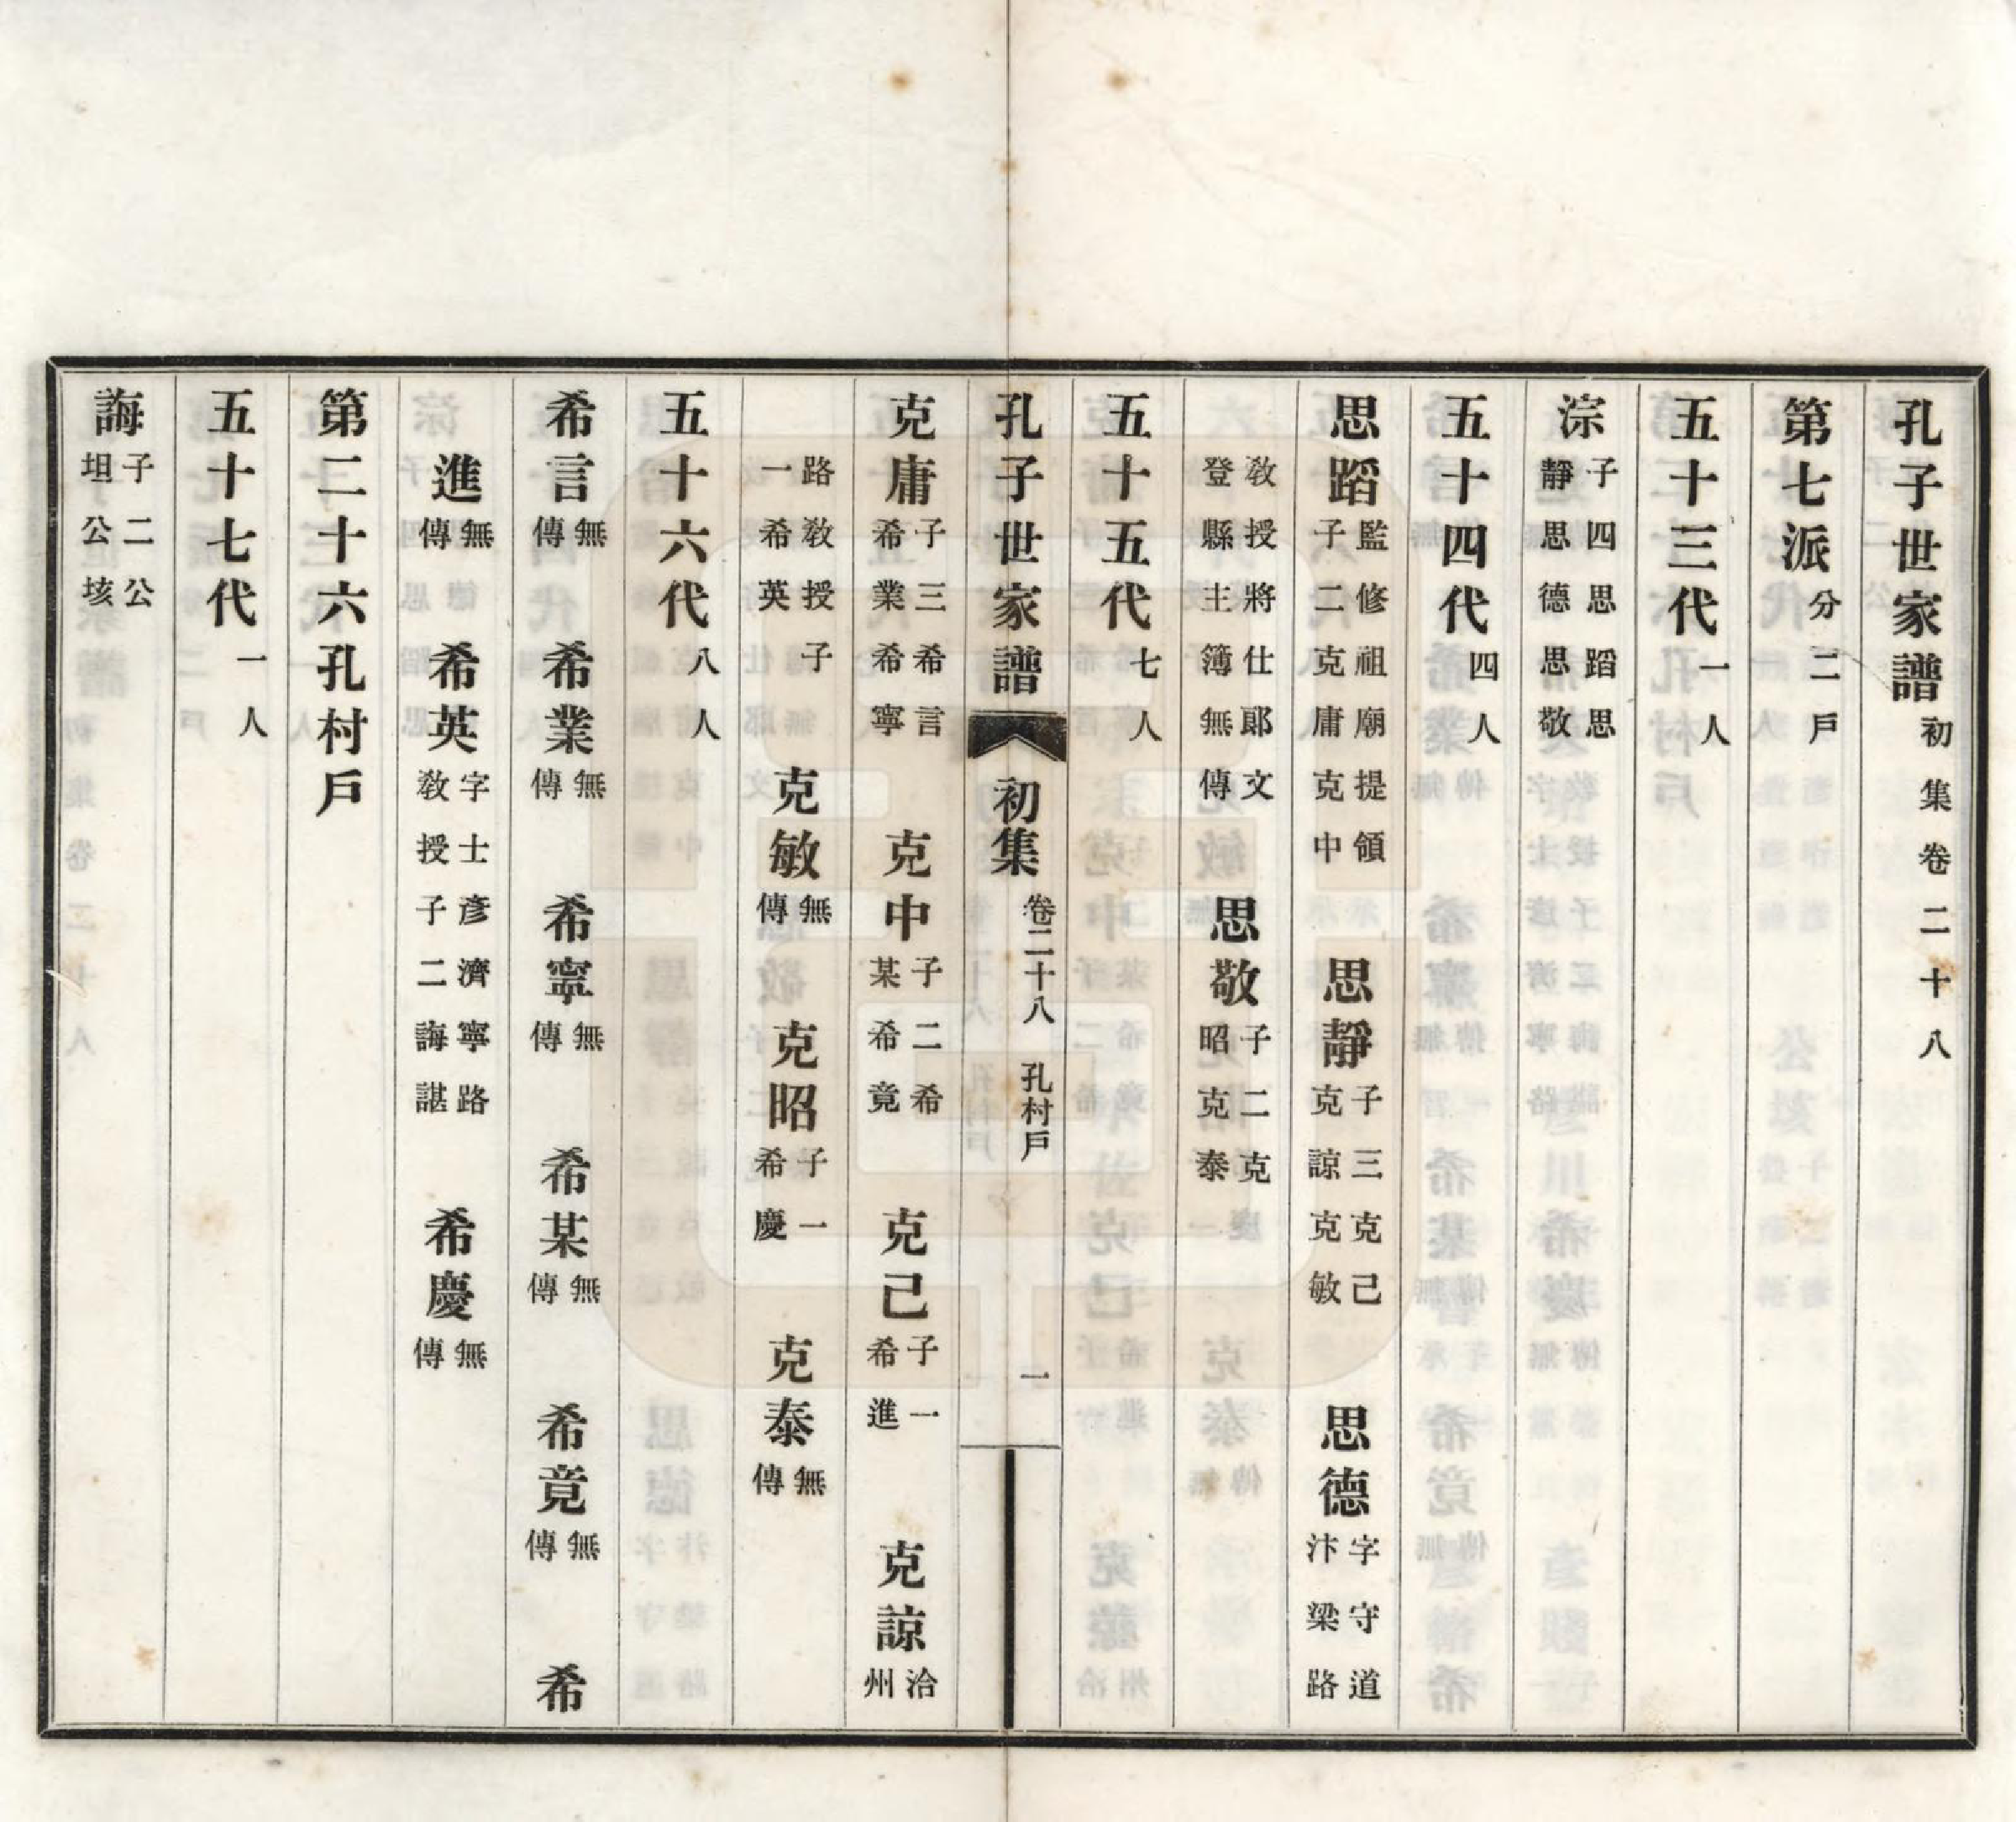 孔子世家譜初集卷二十八
第七派分二戶
五十三代一人
淙子四思蹈思靜思德思敬
五十四代四人
思蹈監修祖廟提領子二克庸克中　思靜子三克己克諒克敏　思德字守道汴梁路
教授將仕郞文登縣主簿無傳　思敬子二克昭克泰
五十五代七人
孔子世家譜　初集　卷二十八　孔村戶　一
克庸子三希言希業希寧　克中子二希某希竟　克己子一希進　克諒洽州
路教授子一希英　克敏無傳　克昭子一希慶　克泰無傳
五十六代八人
希言無傳　希業無傳　希寧無傳　希某無傳　希竟無傳　希
進無傳　希英字士彥濟寧路教授子二誨諶　希慶無傳
第二十六孔村戶
五十七代一人
誨子二公坦公垓